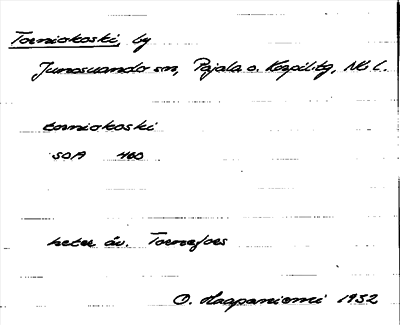 Torniokoski, by
Junosuando sn, Pajala o. Korpil. tg, Nb l.
torniokoski
SOA 460
heter äv. Tornefors
O. Haapaniemi 1932